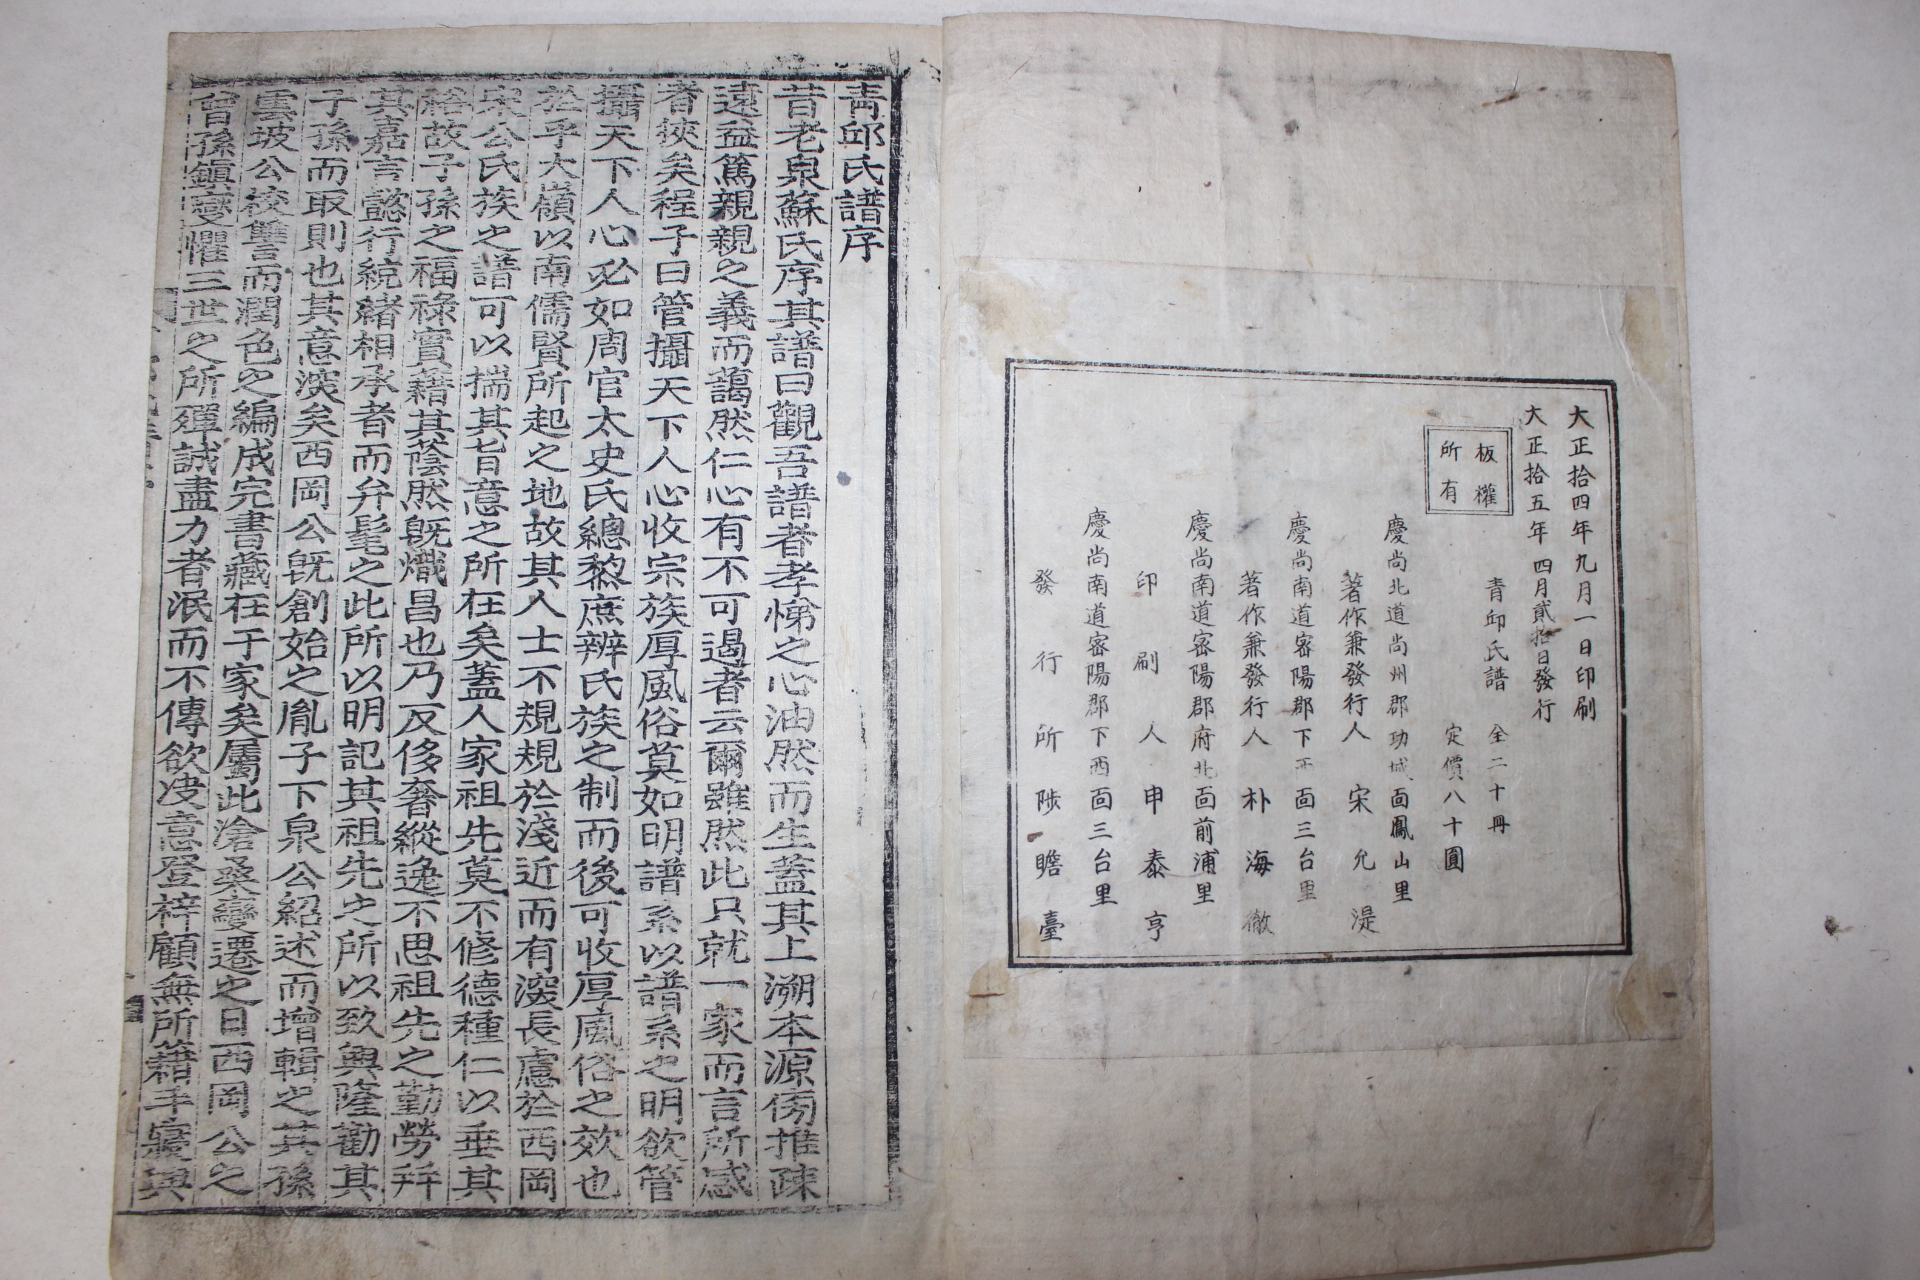 大正拾四年九月一日印刷
大正拾五年四月貳拾日發行
板權
所有
青邱氏譜 全二十冊
定價八十圓
慶尚北道尚州郡功城面鳳山里
著作兼發行人 宋允湜
慶尚南道密陽郡下西面三台里
著作兼發行人 朴海徹
慶尚南道密陽郡府北面前浦里
印刷人 申泰亨
慶尚南道密陽郡下西面三台里
發行所 陟瞻臺
青邱氏譜序
昔老泉蘇氏序其譜曰觀吾譜者孝悌之心油然而生蓋其上溯本源傍推疎
遠益篤親親之義而藹然仁心有不可遏者云爾雖然此只就一家而言所感
者狹矣程子曰管攝天下人心收宗族厚風俗莫如明譜系以譜系之明欲管
攝天下人心必如周官太史氏總黎庶辨氏族之制而後可收厚風俗之效也
於乎大嶺以南儒賢所起之地故其人士不規規於淺近而有深長慮於西岡
宋公氏族之譜可以揣其旨意之所在矣蓋人家祖先莫不修德種仁以垂其
裕故子孫之福祿實藉其蔭然旣熾昌也乃反侈奢縱逸不思祖先之勤勞幷
其嘉言懿行統緖相承者而弁髦之此所以明記其祖先之所以致興隆勸其
子孫而取則也其意深矣西岡公旣創始之胤子下泉公紹述而增輯之其孫
雲坡公校讐而潤色之編成完書藏在于家矣屬此滄桑變遷之日西岡公之
曾孫鎭燮懼三世之所殫誠盡力者泯而不傳欲决意登梓顧無所藉手